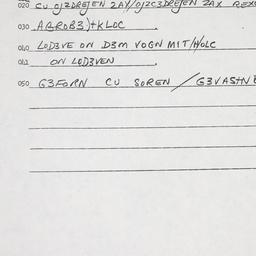 020 CU OJZDREJEN 2AY/OJZC3DREJEN 2AX
030 AARO83)+KLOC
040 LOD3VE ON D3M VOGN MIT/HOLC
042 ON LOD3VEN
050 G3FORN CU SOREN / G3VASTN